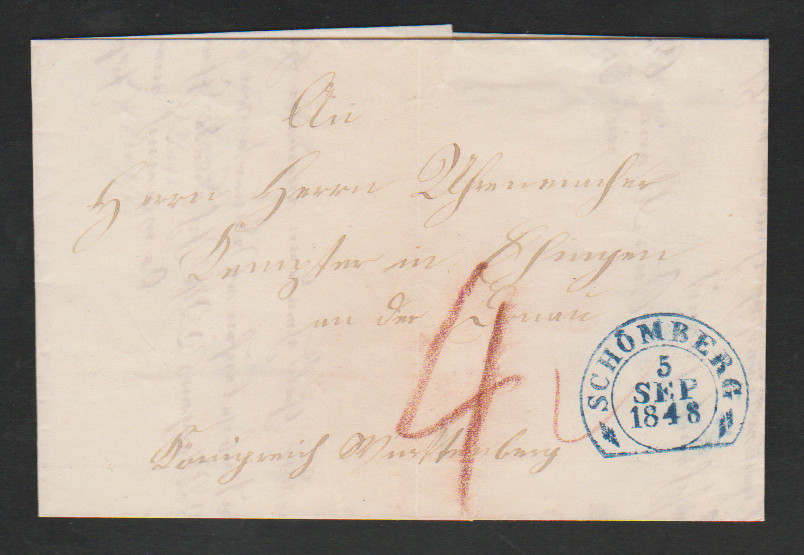 An
Herrn Herrn Uhrenmacher
Kempter in Ehingen
an der Donau
4
SCHÖMBERG
5
SEP
1848
Königreich Württenberg